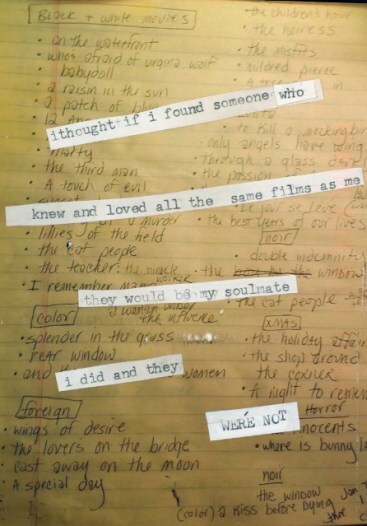 Black + white movies
• on the waterfront
• whos afraid of virgina wolf
• babydoll
• a raisin in the sun
• a patch of
12
ithought if i found someone who
• marty
• the third man
• A touch of evil
knew and loved all the same films as me
murder
• lillies of the field
• the cat people
• the teacher: the miracle
• I remember mama
they would be my soulmate
color
• splender in the grass
• rear window
• and
women
i did and they
foreign
• wings of desire
• the lovers on the bridge
• cast away on the moon
• A special day
• the children's hour
• the heiress
• the misfits
• mildred pierce
in
to kill a mockingbir
only angels have wing
through a glass
the passion
• the best years of our lives
noir
• double indemnity
• the window
• the cat people
xmas
• the holiday affair
• the shop around
the corner
• A night to remem
WERE NOT
horror
• innocents
• where is bunny la
noir
the window
(color) a kiss before Dying